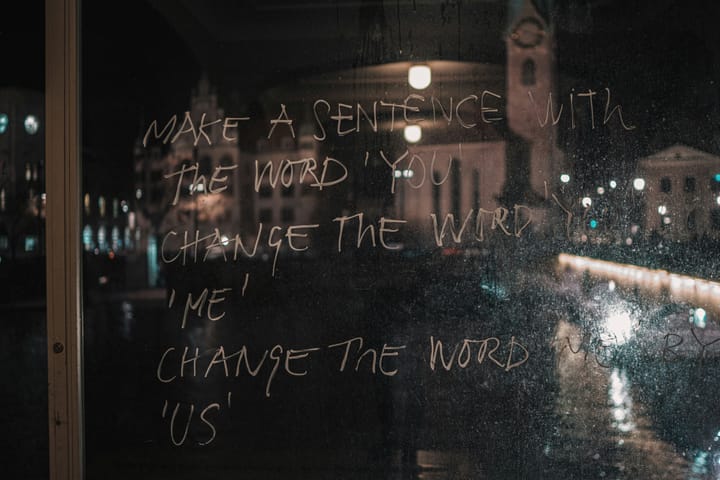 MAKE A SENTENCE WITH
THE WORD 'YOU'
CHANGE THE WORD
'ME'
CHANGE THE WORD BY
'US'